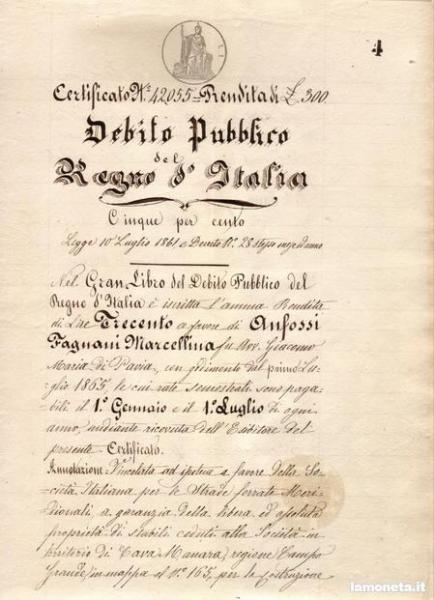 4
Certificato N.º 42055 = Rendita di £ 300
Debito Pubblico
del
Regno d'Italia
Cinque per cento
Legge 10 Luglio 1861 e Decreto N.º 28 stesso mese ed anno
Nel Gran Libro del Debito Pubblico del
Regno d'Italia è iscritta l'annua Rendita
di Lire Trecento a favore di Anfossi
Fagnani Marcellina fu Avv. Giacomo
Maria di Pavia, con godimento dal primo Lu=
glio 1865, le cui rate semestrali sono paga=
bili il 1.º Gennaio e il 1.º Luglio di ogni
anno, mediante ricevuta dell'Esibitore del
presente Certificato.
Annotazione: Vincolata ad ipoteca a favore della So=
cietà Italiana per le Strade ferrate Meri=
dionali a garanzia della libera ed assoluta
proprietà di stabili ceduti alla Società in
territorio di Cava Manara, regione Campo
Grande, in mappa al N.º 165, per la costruzione
lamoneta.it